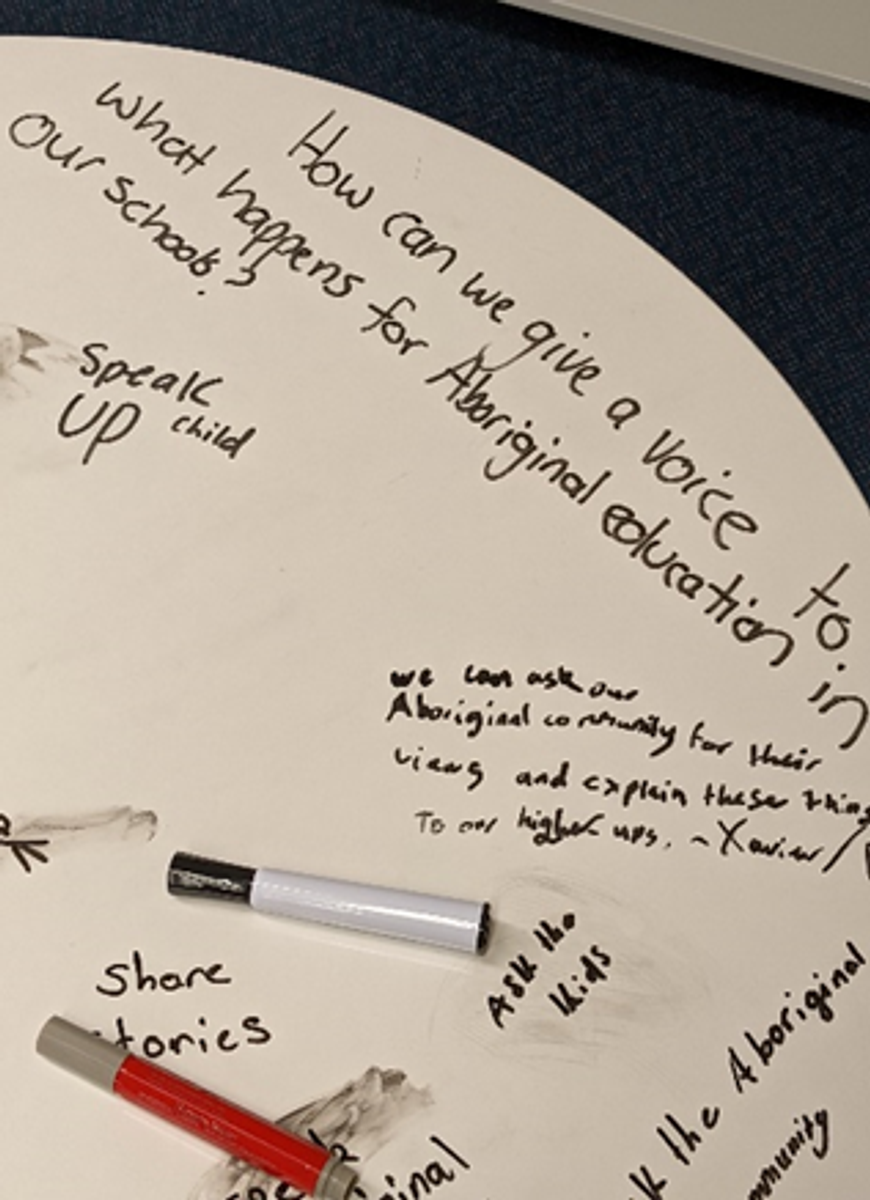 How can we give a voice to
what happens for Aboriginal education in
our schools?
Speak
UP child
we can ask our
Aboriginal community for their
views and explain these
To our higher ups. ~Xavier
Ask the
kids
Share
the Aboriginal